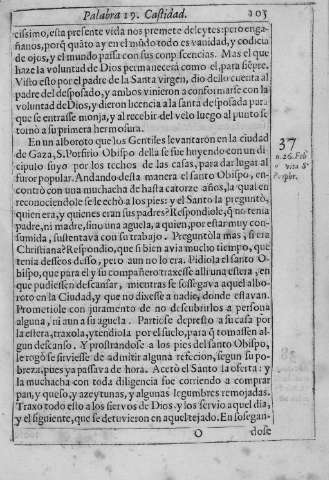 Palabra 19. Castidad. 103
cissimo, esta presente vida nos promete deleytes: pero enga-
ñanos, porq̃ quãto ay en el mũdo todo es vanidad, y codicia
de ojos, y el mundo passa con sus concupiscencias. Mas el que
haze la voluntad de Dios permanecerà como el, para siẽpre.
Visto esto por el padre de la Santa virgen, dio dello cuenta al
padre del desposado, y ambos vinieron a conformarse con la
voluntad de Dios, y dieron licencia a la santa desposada para
que se entrasse monja, y al recebir del velo luego al punto se
tornò a su primera hermosura.
En un alboroto que los Gentiles levantaron en la ciudad
de Gaza, S. Porfirio Obispo della se fue huyendo con un di-
cipulo suyo por los techos de las casas, para dar lugar al
furor popular. Andando desta manera el santo Obispo, en-
contrò con una muchacha de hasta catorze años, la qual en
reconociendole se le echò a los pies: y el Santo la preguntò,
quien era, y quienes eran sus padres? Respondiole, q̃ no tenia
padre, ni madre, sino una aguela, a quien, por estar muy con-
sumida, sustentava con su trabajo. Preguntòla mas, si era
Christiana? Respondio, que si bien avia mucho tiempo, que
tenia desseos desso, pero aun no lo era. Pidiola el santo O-
bispo, que para el y su compañero traxesse alli una estera, en
que pudiessen descansar, mientras se sossegava aquel albo-
roto en la Ciudad, y que no dixesse a nadie, donde estavan.
Prometiole con juramento de no descubrirlos a persona
alguna, ni aun a su aguela. Partiose depresto a su casa por
la estera, traxola, y tendiola por el suelo, para q̃ tomassen al-
gun descanso. Y prostrandose a los pies del santo Obispo,
le rogò se sirviesse de admitir alguna refeccion, segun su po-
breza, pues ya passava de hora. Acetò el Santo la oferta: y
la muchacha con toda diligencia fue corriendo a comprar
pan, y queso, y azeytunas, y algunas legumbres remojadas.
Traxo todo esto a los siervos de Dios, y los servio aquel dia,
y el siguiente, que se detuvieron en aquel tejado. En sossegan-
O dose
37
a. 26. Feb.
vita S.
Porphir.